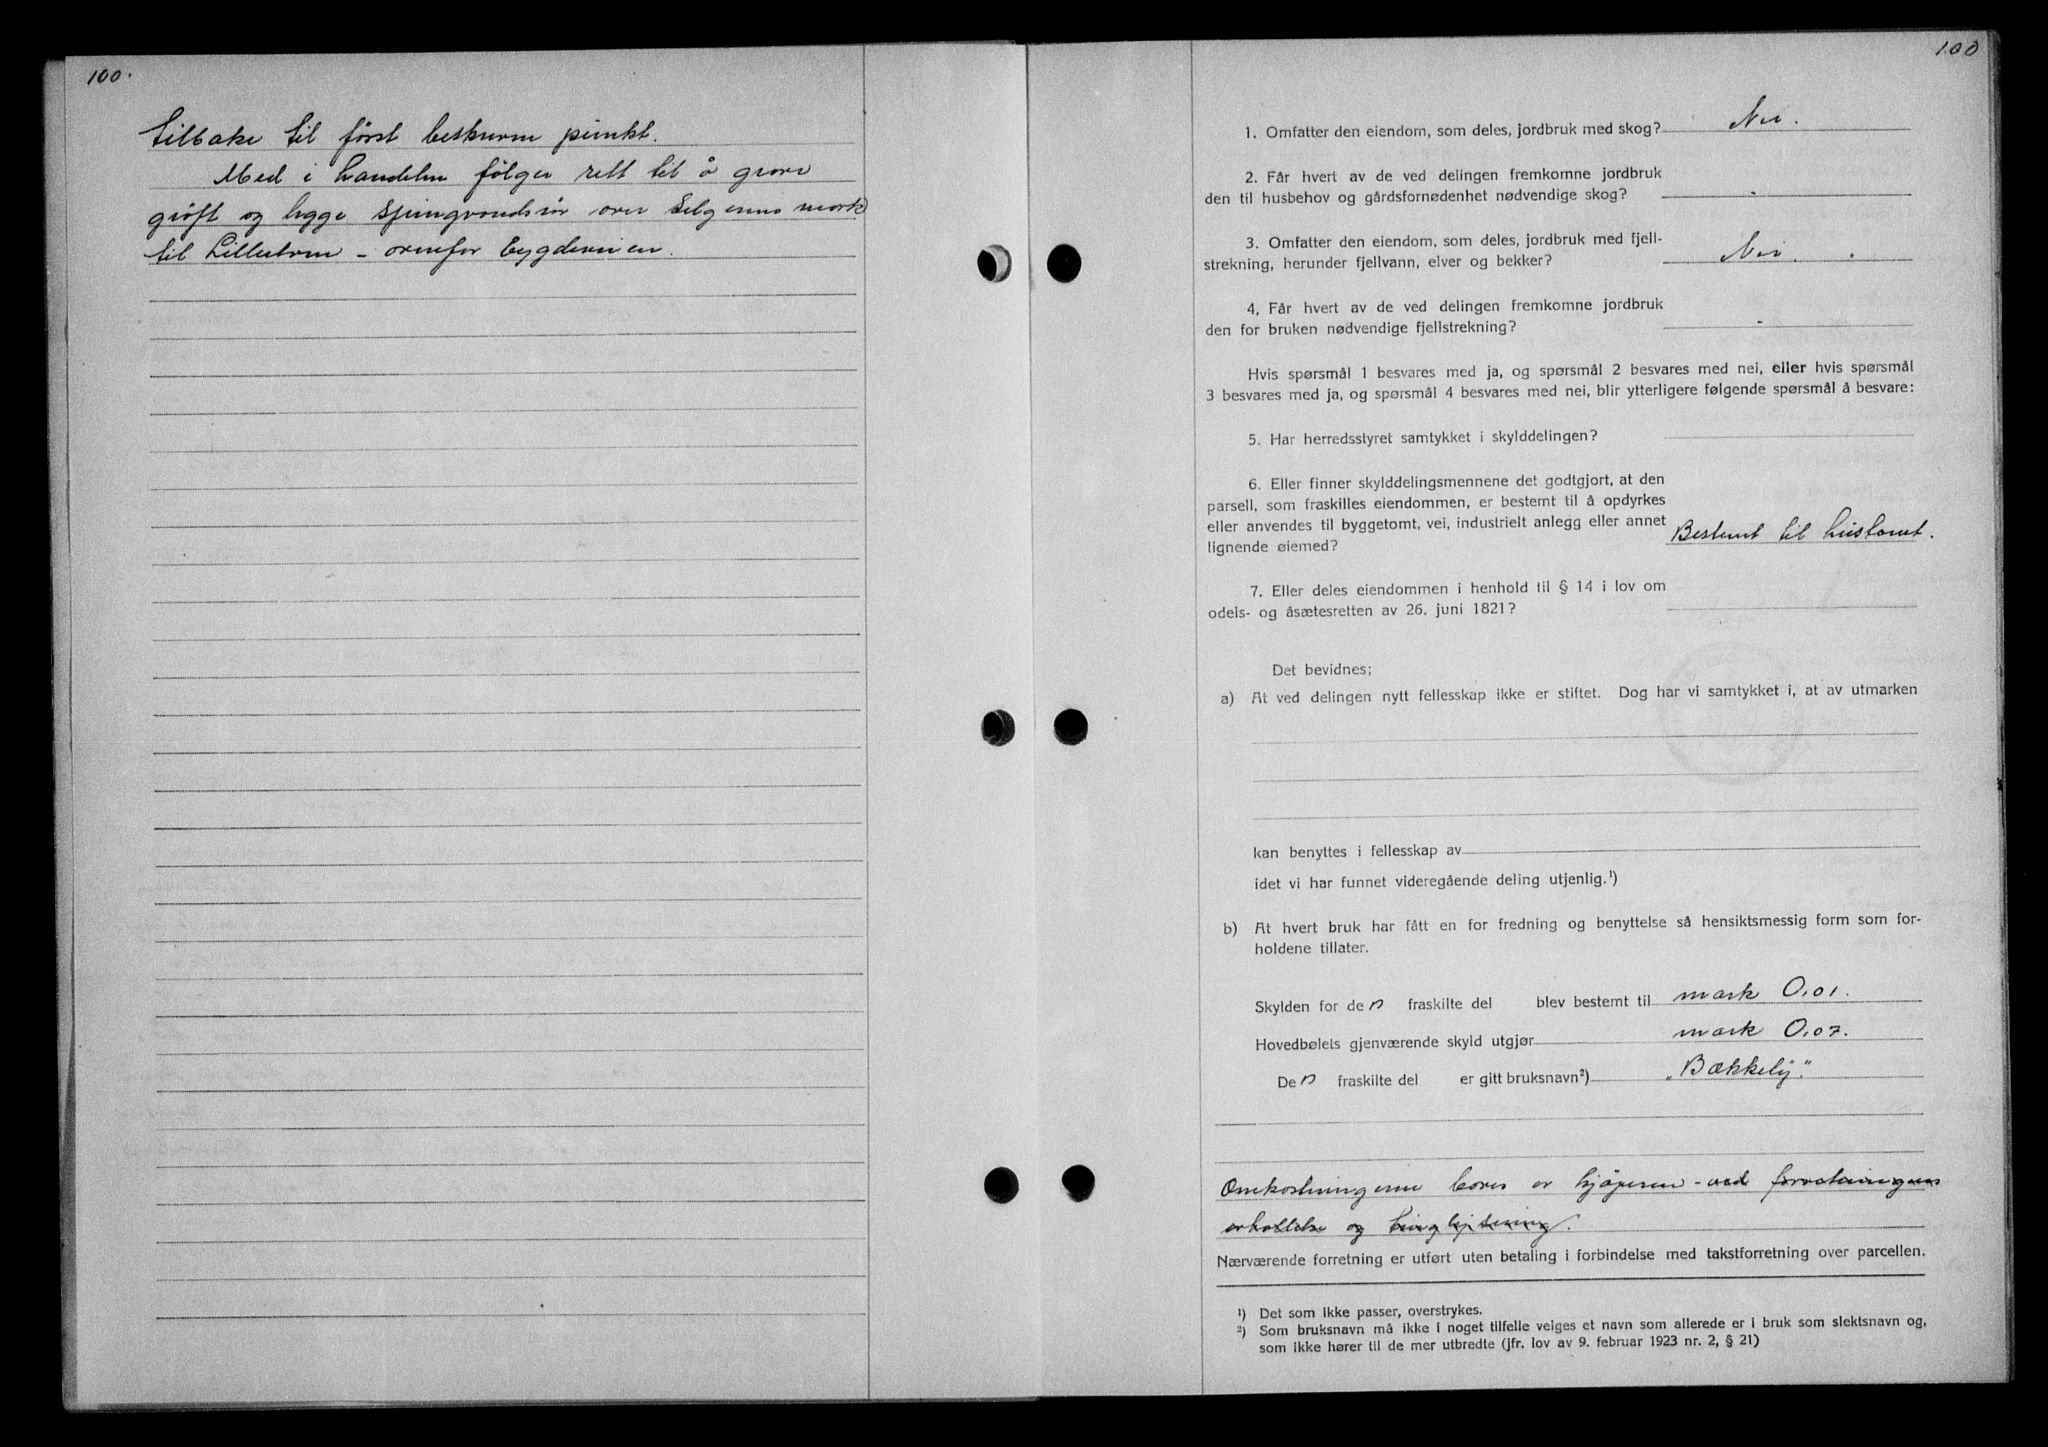 100.
tilbake til først beskrevne punkt.
Med i handelen følger rett til å grave
grøft og legge springvandsrør over selgerens mark
til Lillestrøm - ovenfor bygdeveien.
100
1. Omfatter den eiendom, som deles, jordbruk med skog? Nei.
2. Får hvert av de ved delingen fremkomne jordbruk
den til husbehov og gårdsfornødenhet nødvendige skog?
3. Omfatter den eiendom, som deles, jordbruk med fjell-
strekning, herunder fjellvann, elver og bekker? Nei.
4, Får hvert av de ved delingen fremkomne jordbruk
den for bruken nødvendige fjellstrekning?
Hvis spørsmål 1 besvares med ja, og spørsmål 2 besvares med nei, eller hvis spørsmål
3 besvares med ja, og spørsmål 4 besvares med nei, blir ytterligere følgende spørsmål å besvare:
5. Har herredsstyret samtykket i skylddelingen?
6. Eller finner skylddelingsmennene det godtgjort, at den
parsell, som fraskilles eiendommen, er bestemt til å opdyrkes
eller anvendes til byggetomt, vei, industrielt anlegg eller annet
lignende øiemed? Bestemt til hustomt.
7. Eller deles eiendommen i henhold til § 14 i lov om
odels- og åsætesretten av 26. juni 1821?
Det bevidnes;
a) At ved delingen nytt fellesskap ikke er stiftet. Dog har vi samtykket i, at av utmarken
kan benyttes i fellesskap av
idet vi har funnet videregående deling utjenlig.¹)
b) At hvert bruk har fått en for fredning og benyttelse så hensiktsmessig form som for-
holdene tillater.
Skylden for den fraskilte del blev bestemt til mark 0,01.
Hovedbølets gjenværende skyld utgjør mark 0,07.
Den fraskilte del er gitt bruksnavn²) „Bækkely".
Omkostningerne bæres av kjøperen - ved forretningens
avholdelse og tinglysning.
Nærværende forretning er utført uten betaling i forbindelse med takstforretning over parcellen.
¹) Det som ikke passer, overstrykes.
²) Som bruksnavn må ikke i noget tilfelle velges et navn som allerede er i bruk som slektsnavn og,
som ikke hører til de mer utbredte (jfr. lov av 9. februar 1923 nr. 2, § 21)